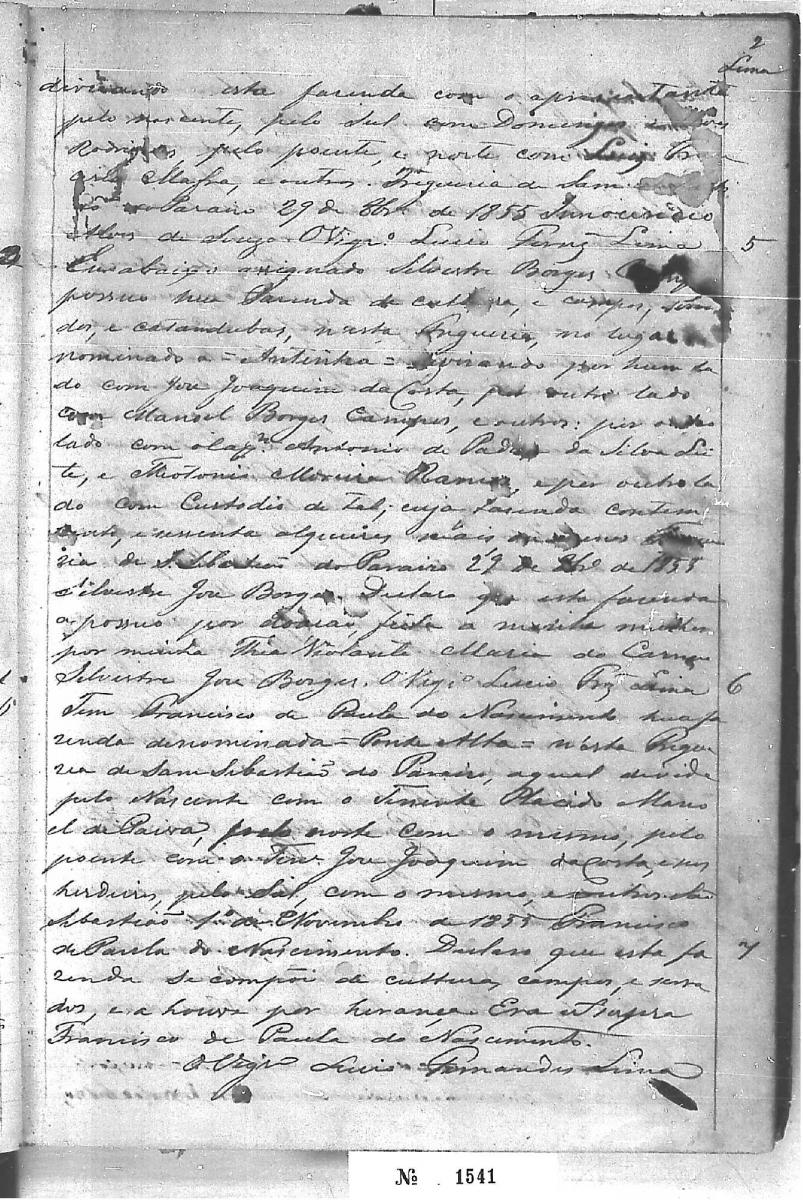 2
Lima
divisando esta fazenda com o apresentante
pelo nascente, pelo Sul com Domingos Alves
Rodrigues, pelo poente, e norte com Luiz Fran
Mafra, e outros. Freguezia de Sam
do Paraizo 29 de 8br.º de 1855 Innocencio
Alves de Souza O Vigr.º Lucio Fernz Lima
5
Eu abaixo assignado Silvestre Borges
possuo hua Fazenda de cultura, e campos, serra
dos, e catandubas, n'esta Freguezia, no lugar
nominado a = Antinha = divisando por hum la
do com Joze Joaquim da Costa, por outro lado
com Manoel Borges Campos, e outros: por outro
lado com o Antonio de Padua da Silva Lei
te, e Theotonio Moreira Ramos, e por outro la
do com Custodio de Tal; cuja Fazenda contem
cento, e sessenta alqueires mais ou menos Fregue
zia de S. Sebastiaõ do Paraizo 29 de 8br.º de 1855
Silvestre Joze Borges. Declaro que esta fazenda
a possuo por doaçaõ feita a minha mulher
por minha Thia Violante Maria do Carmo
Silvestre Joze Borges. O Vigr.º Lucio Frz Lima
6
Tem Francisco de Paula do Nascimento hua fa
zenda denominada = Ponte Alta = n'esta Fregue
zia de Sam Sebastiaõ do Paraizo, a qual devide
pelo Nascente com o Tenente Placido Mano
el de Paiva, pelo norte com o mesmo, pelo
poente com o Ten.e Joze Joaquim da Costa, e seos
herdeiros, pelo Sul, com o mesmo, e outros Saõ
Sebastiaõ 1.º de Novembro de 1855 Francisco
de Paula do Nascimento. Declaro que esta fa
7
zenda se compõi de culturas, campos, e serra
dos, e a houve por herança Era
Francisco de Paula do Nascimento.
O Vigr.º Lucio Fernandes Lima
Nº 1541